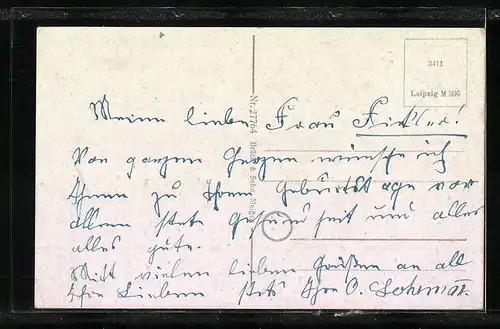 3411
Leipzig M 306
Meine liebe Frau Fickler!
Von ganzem Herzen wünsche ich
Ihnen zu Ihrem Geburtstage vor
allem stets Gesundheit und alles
alles gute.
Mit vielen lieben Grüßen an all
Ihre Lieben stets Ihre O.
Nr. 27764